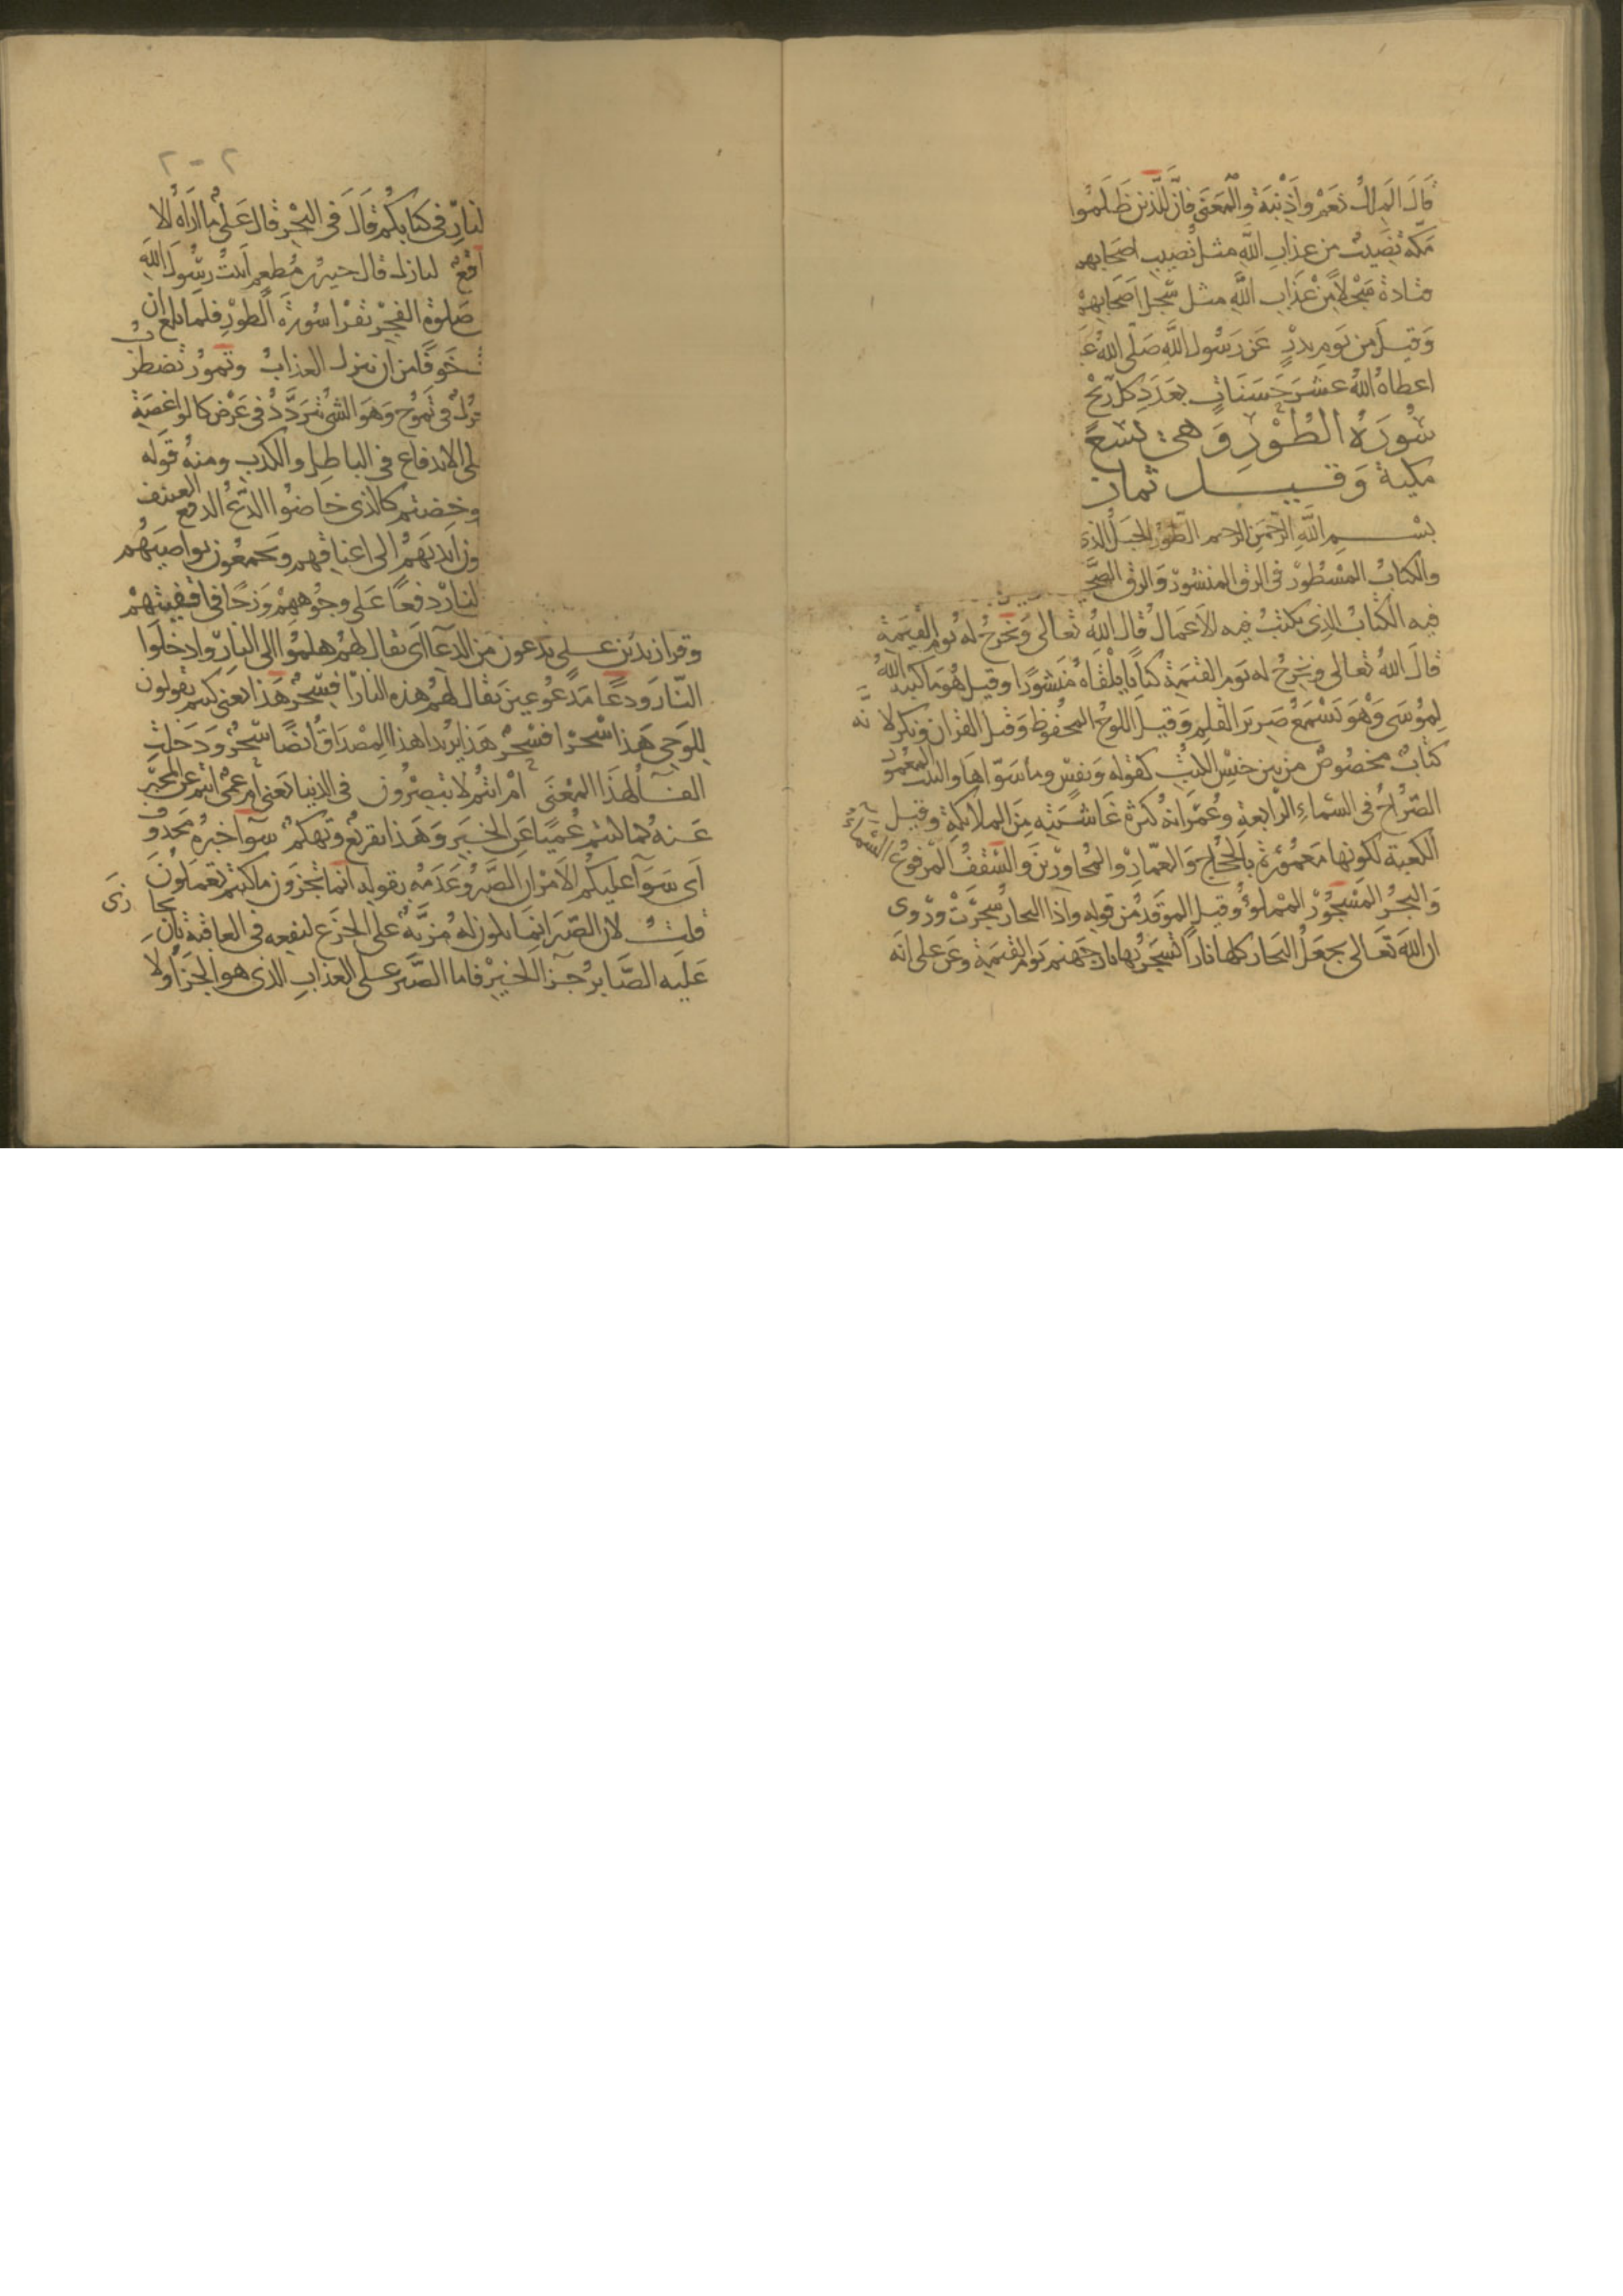 قال الملك نعم واذنبة والمعنى فان للذين ظلموا
مكة نصيب من عذاب الله مثل نصيب اصحابهم
من عذاب الله مثل سجل اصحابهم
وقيل من يوم بدر عن رسول الله صلى الله
اعطاه الله عشر حسنات بعدد كل ريح
سورة الطور وهى تسع
مكية وقيل ثمان
بسم الله الرحمن الرحيم الطور الجبل الذى
والكتاب المسطور فى الرق المنشور والرق الصح
فيه الكتاب الذى يكتب فيه الاعمال قال الله تعالى ونخرج له يوم القيمة
قال الله تعالى ونخرج له يوم القيمة كتابا يلقاه منشورا وقيل هو ما كتبه الله
لموسى وهو يسمع صرير القلم وقيل اللوح المحفوظ وقيل القران ونكر لانه
كتاب مخصوص من بين جنس الكتب كقوله ونفس وما سواها والبيت المعمور
الضراح فى السماء الرابعة وعمرانه كثرة غاشيته من الملائكة وقيل
الكعبة لكونها معمورة بالحجاج والعمار والمجاورين والسقف المرفوع السماء
والبحر المسجور المملوء وقيل الموقد من قوله واذا البحار سجرت وروى
ان الله تعالى يجعل البحار كلها نارا تسجر بها نار جهنم يوم القيمة وعن على انه
٢٠٢
النار فى كتابكم قال فى البحر قال على ما اراه الا
لواقع لنازل قال جبير بن مطعم اتيت رسول الله
صلوة الفجر يقرا سورة الطور فلما بلغ ان
خوفا من ان ينزل العذاب وتمور تضطر
فى تموج وهو الشى يتردد فى عرض كالداغصة
فى الاندفاع فى الباطل والكذب ومنه قوله
وخضتم كالذى خاضوا الدع الدفع العنيف
ون ايديهم الى اعناقهم ويجمعون نواصيهم
النار دفعا على وجوههم وزخا فى اقفيتهم
وقرا زيد بن على يدعون من الدعا اى يقال لهم هلموا الى النار وادخلوا
النار ودعا مدعوعين يقال لهم هذه النار افسحر هذا يعنى كنتم تقولون
للوحى هذا سحر افسحر هذا يريد اهذا المصداق ايضا سحر ودخلت
الفا لهذا المعنى ام انتم لا تبصرون فى الدنيا يعنى ام عمى انتم عن المخبر
عنه كما كنتم عميا عن الخبر وهذا تقريع وتهكم سوآ خبره محذوف
اى سوآ عليكم الامران الصبر وعدمه بقوله انما تجزون ما كنتم تعملون
قلت لان الصبر انما يكون له مزية على الجزع لنفعه فى العاقبة بان يجازى
عليه الصابر جزآ الخير فاما الصبر على العذاب الذى هو الجزآ ولا